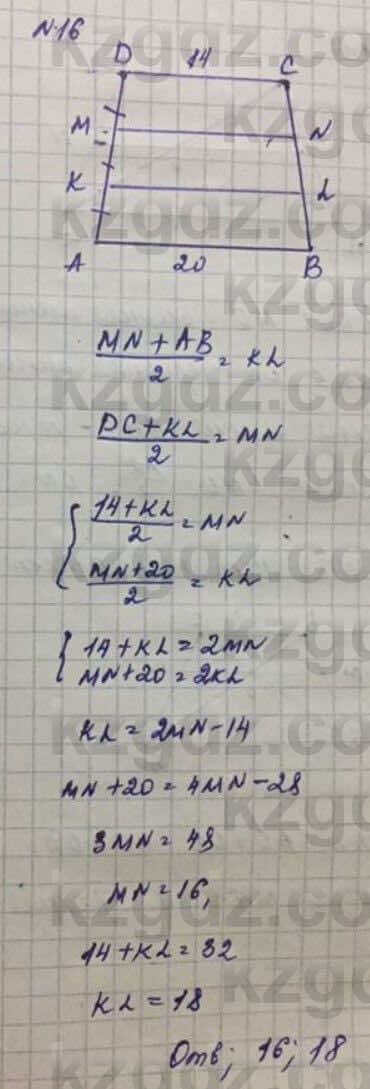 N16
D 14 C
M N
K L
A 20 B
MN + AB / 2 = KL
DC + KL / 2 = MN
{ 14 + KL / 2 = MN
MN + 20 / 2 = KL
{ 14 + KL = 2MN
MN + 20 = 2KL
KL = 2MN - 14
MN + 20 = 4MN - 28
3MN = 48
MN = 16,
14 + KL = 32
KL = 18
Отв; 16; 18
kzgdz.com